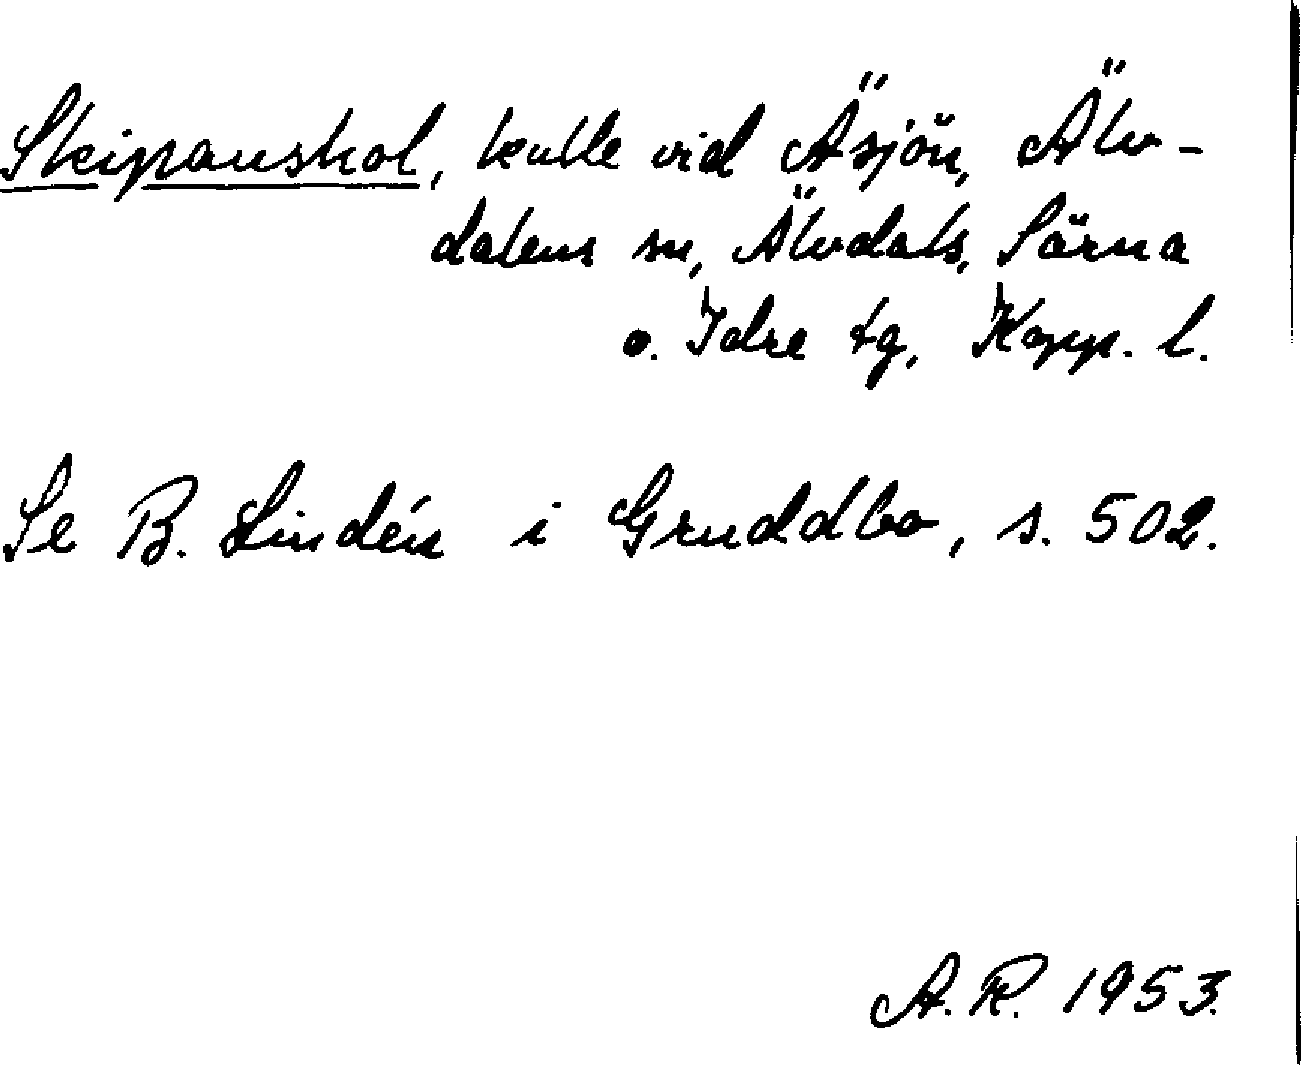 Skeipauskol, kulle vid Äsjön, Älv-
dalens sn, Älvdals, Särna
o. Idre tg, Kopp. l.
Se B. Lindén i Gruddbo, s. 502.
A.R. 1953.